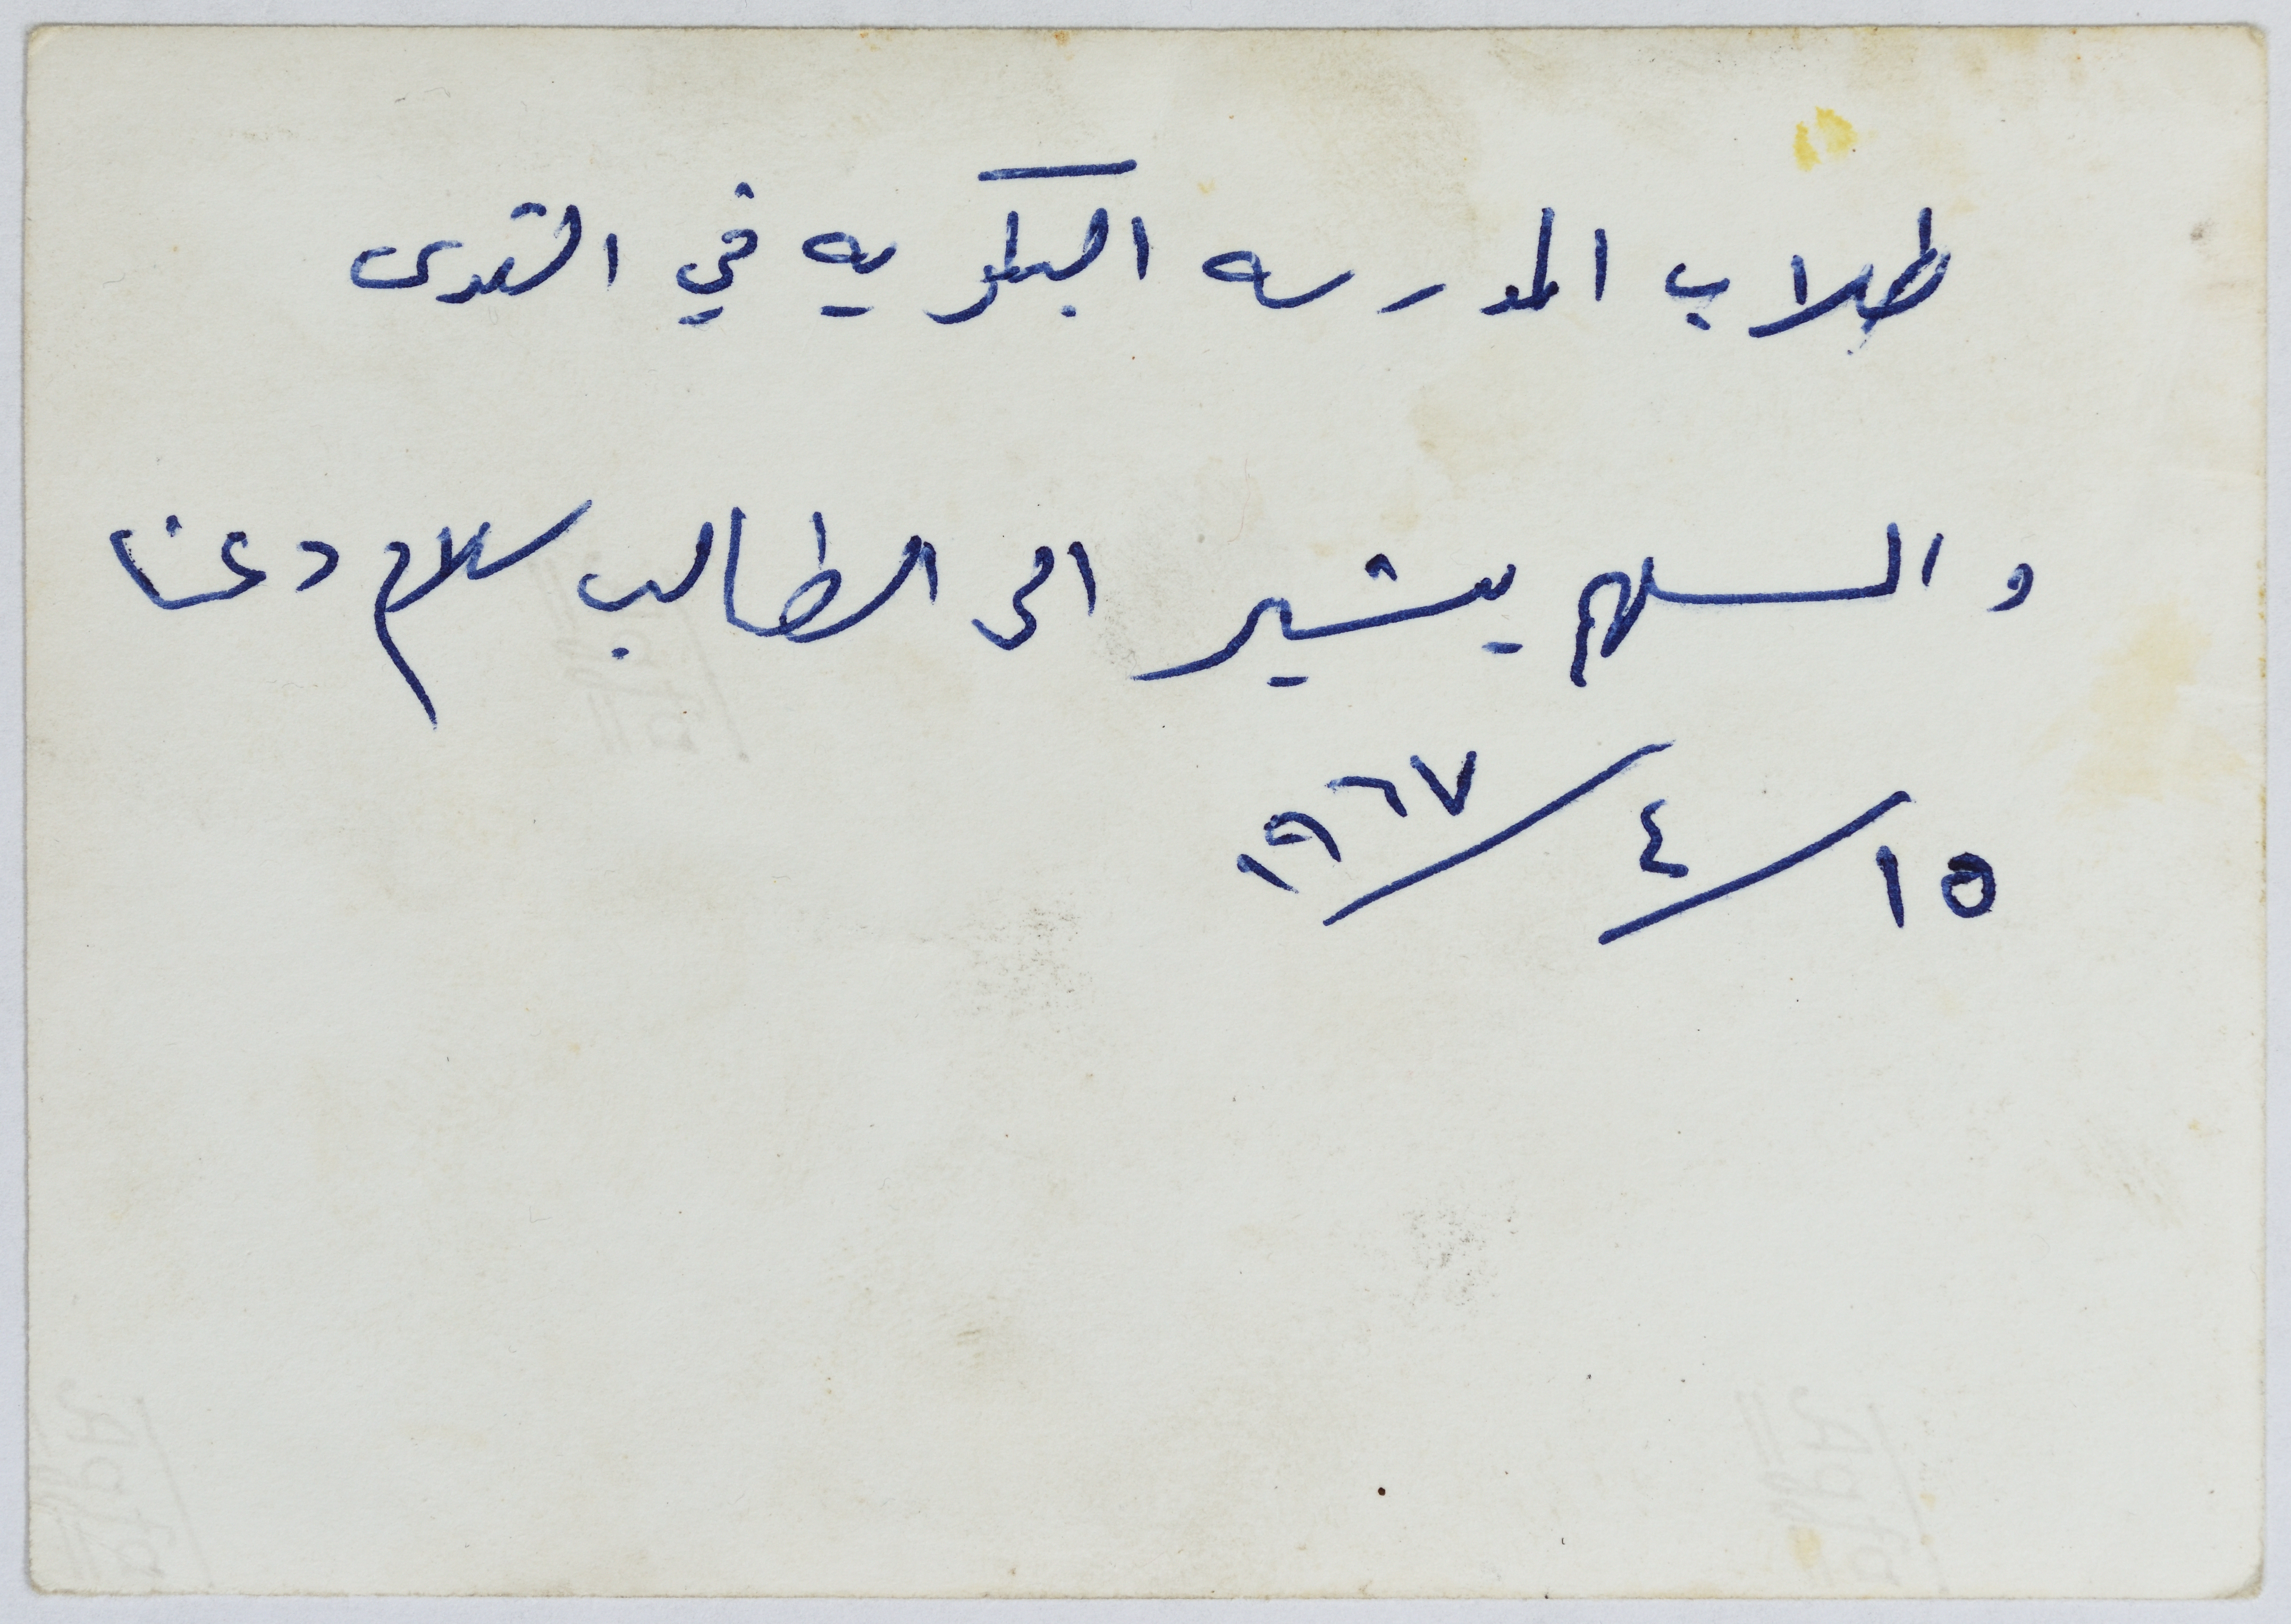 طلاب المدرسه البكريه في القدس
والسهم يشير الى الطالب سلام دعنا
١٥/٤/١٩٦٧
Agfa
Agfa
Agfa